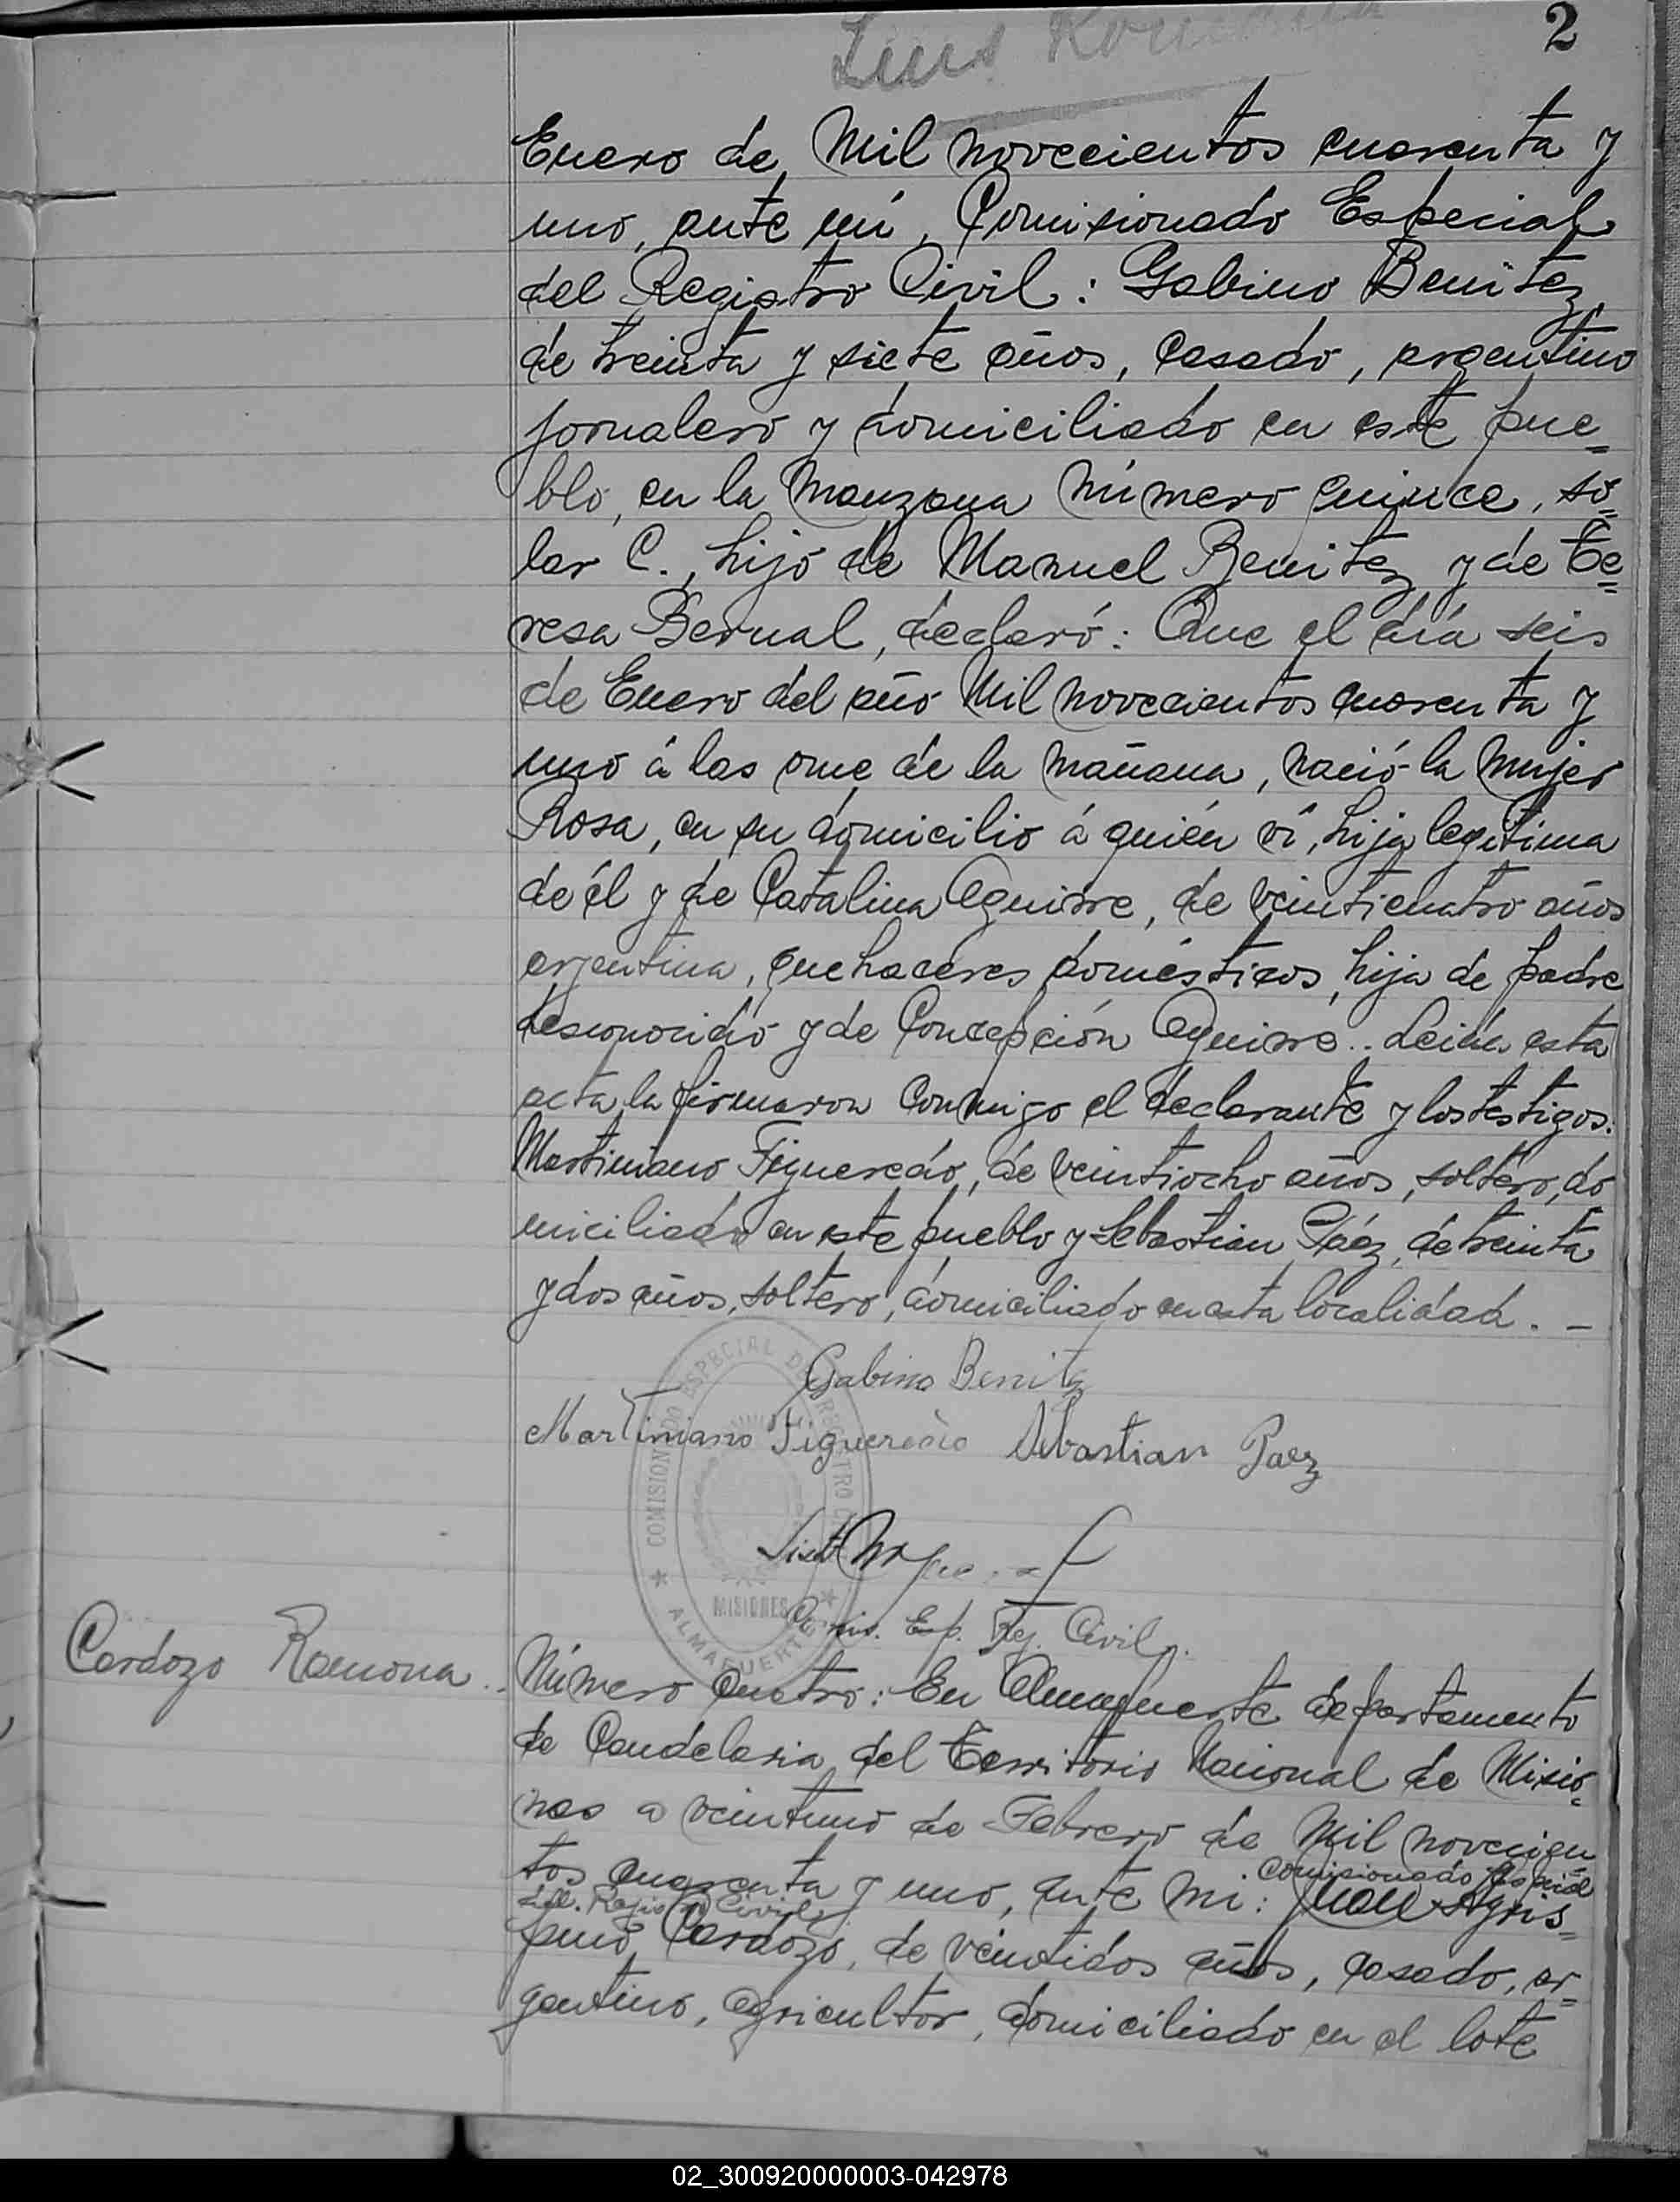 2
Luis
Enero de Mil novecientos cuarenta y
uno, ante mí, Comisionado Especial
del Registro Civil: Gabino Benitez
de treinta y siete años, casado, argentino
jornalero y domiciliado en este pue=
blo, en la manzana número quince, so=
lar C., hijo de Manuel Benitez y de Te=
resa Bernal, declaró: Que el día seis
de Enero del año Mil novecientos cuarenta y
uno á las once de la mañana, nació la mujer
Rosa, en su domicilio á quién ví, hija legítima
de él y de Catalina Aguirre, de veinticuatro años
argentina, quehaceres domésticos, hija de padre
desconocido y de Concepción Aguirre.. Leida esta
acta la firmaron conmigo el declarante y los testigos:
Martiniano Figueredo, de veintiocho años, soltero, do
miciliado en este pueblo y Sebastian Páez, de treinta
y dos años, soltero, domiciliado en esta localidad. –
Gabino Benitz
Martiniano Figueredo Sebastian Paez
COMISIONADO ESPECIAL DEL REGISTRO
MISIONES
ALMAFUERTE
Comis. Esp. Reg. Civil
Cardozo Ramona..
Número cuatro: En Almafuerte departamento
de Candelaria del Territorio Nacional de Misio=
nes a veintiuno de Febrero de Mil novecien
tos cuarenta y uno, ante mi: Comisionado Especial
del Registro Civil, Juan Agris=
pino Cardozo, de veintidos años, casado, ar=
gentino, agricultor, domiciliado en el lote
02_300920000003-042978